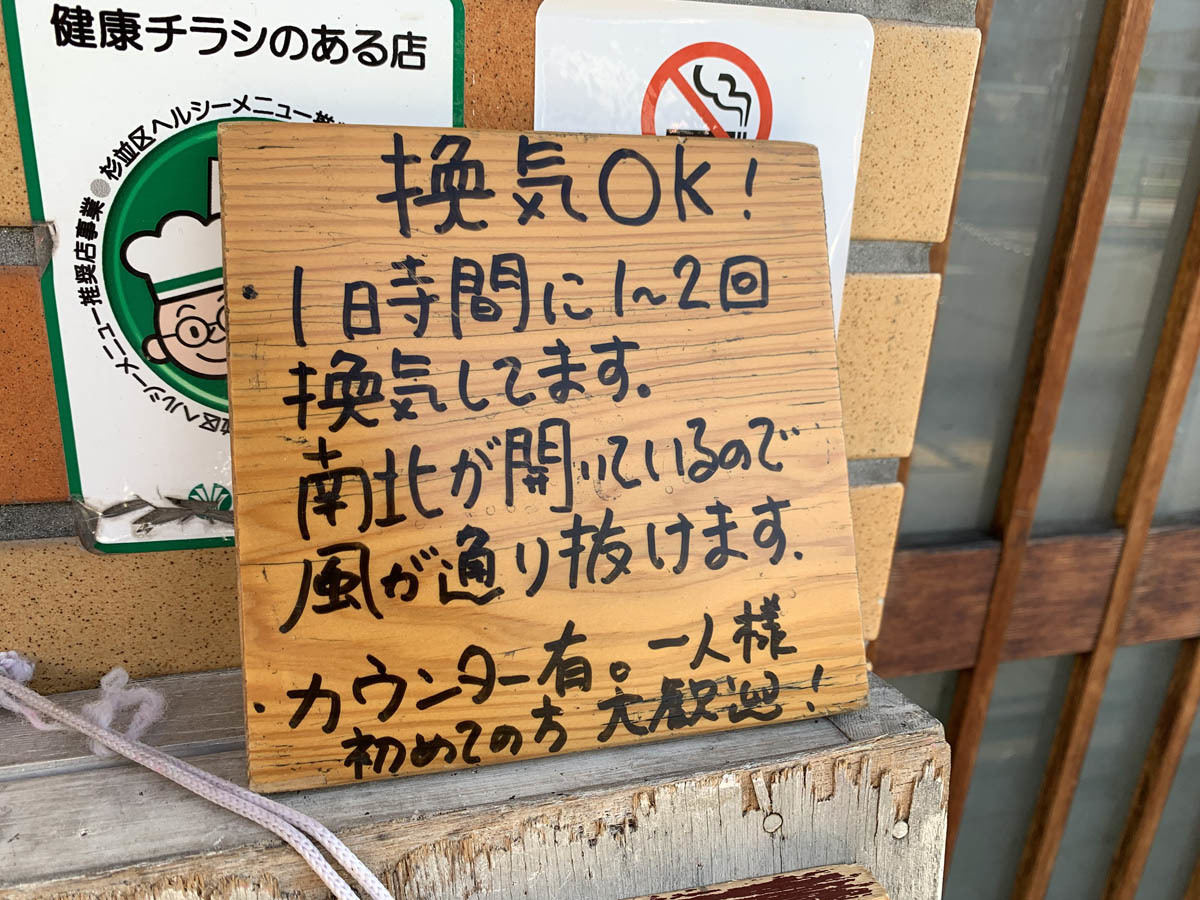 健康チラシのある店
杉並区ヘルシーメニュー推奨店事業
換気OK!
1時間に1~2回
換気してます.
南北が開いているので
風が通り抜けます.
・カウンター有。一人様
初めての方 大歓迎!